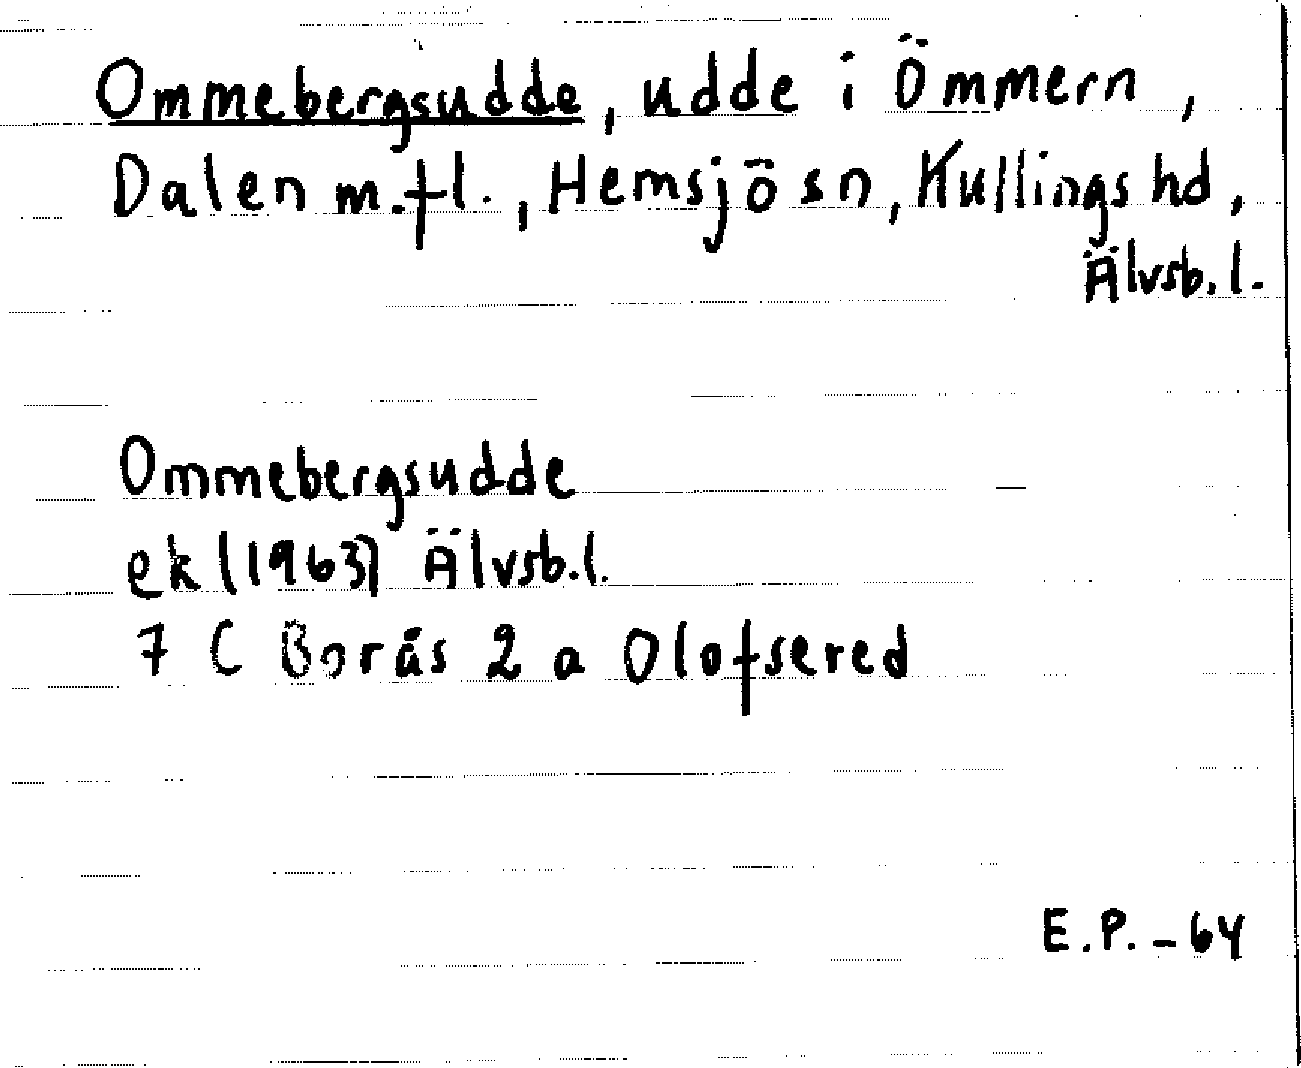 Ommebergsudde, udde i Ömmern,
Dalen m.fl., Hemsjö sn, Kullings hd,
Älvsb. l.
Ommebergsudde
ek (1963) Älvsb. l.
7 C Borås 2 a Olofsered
E.P. - 64